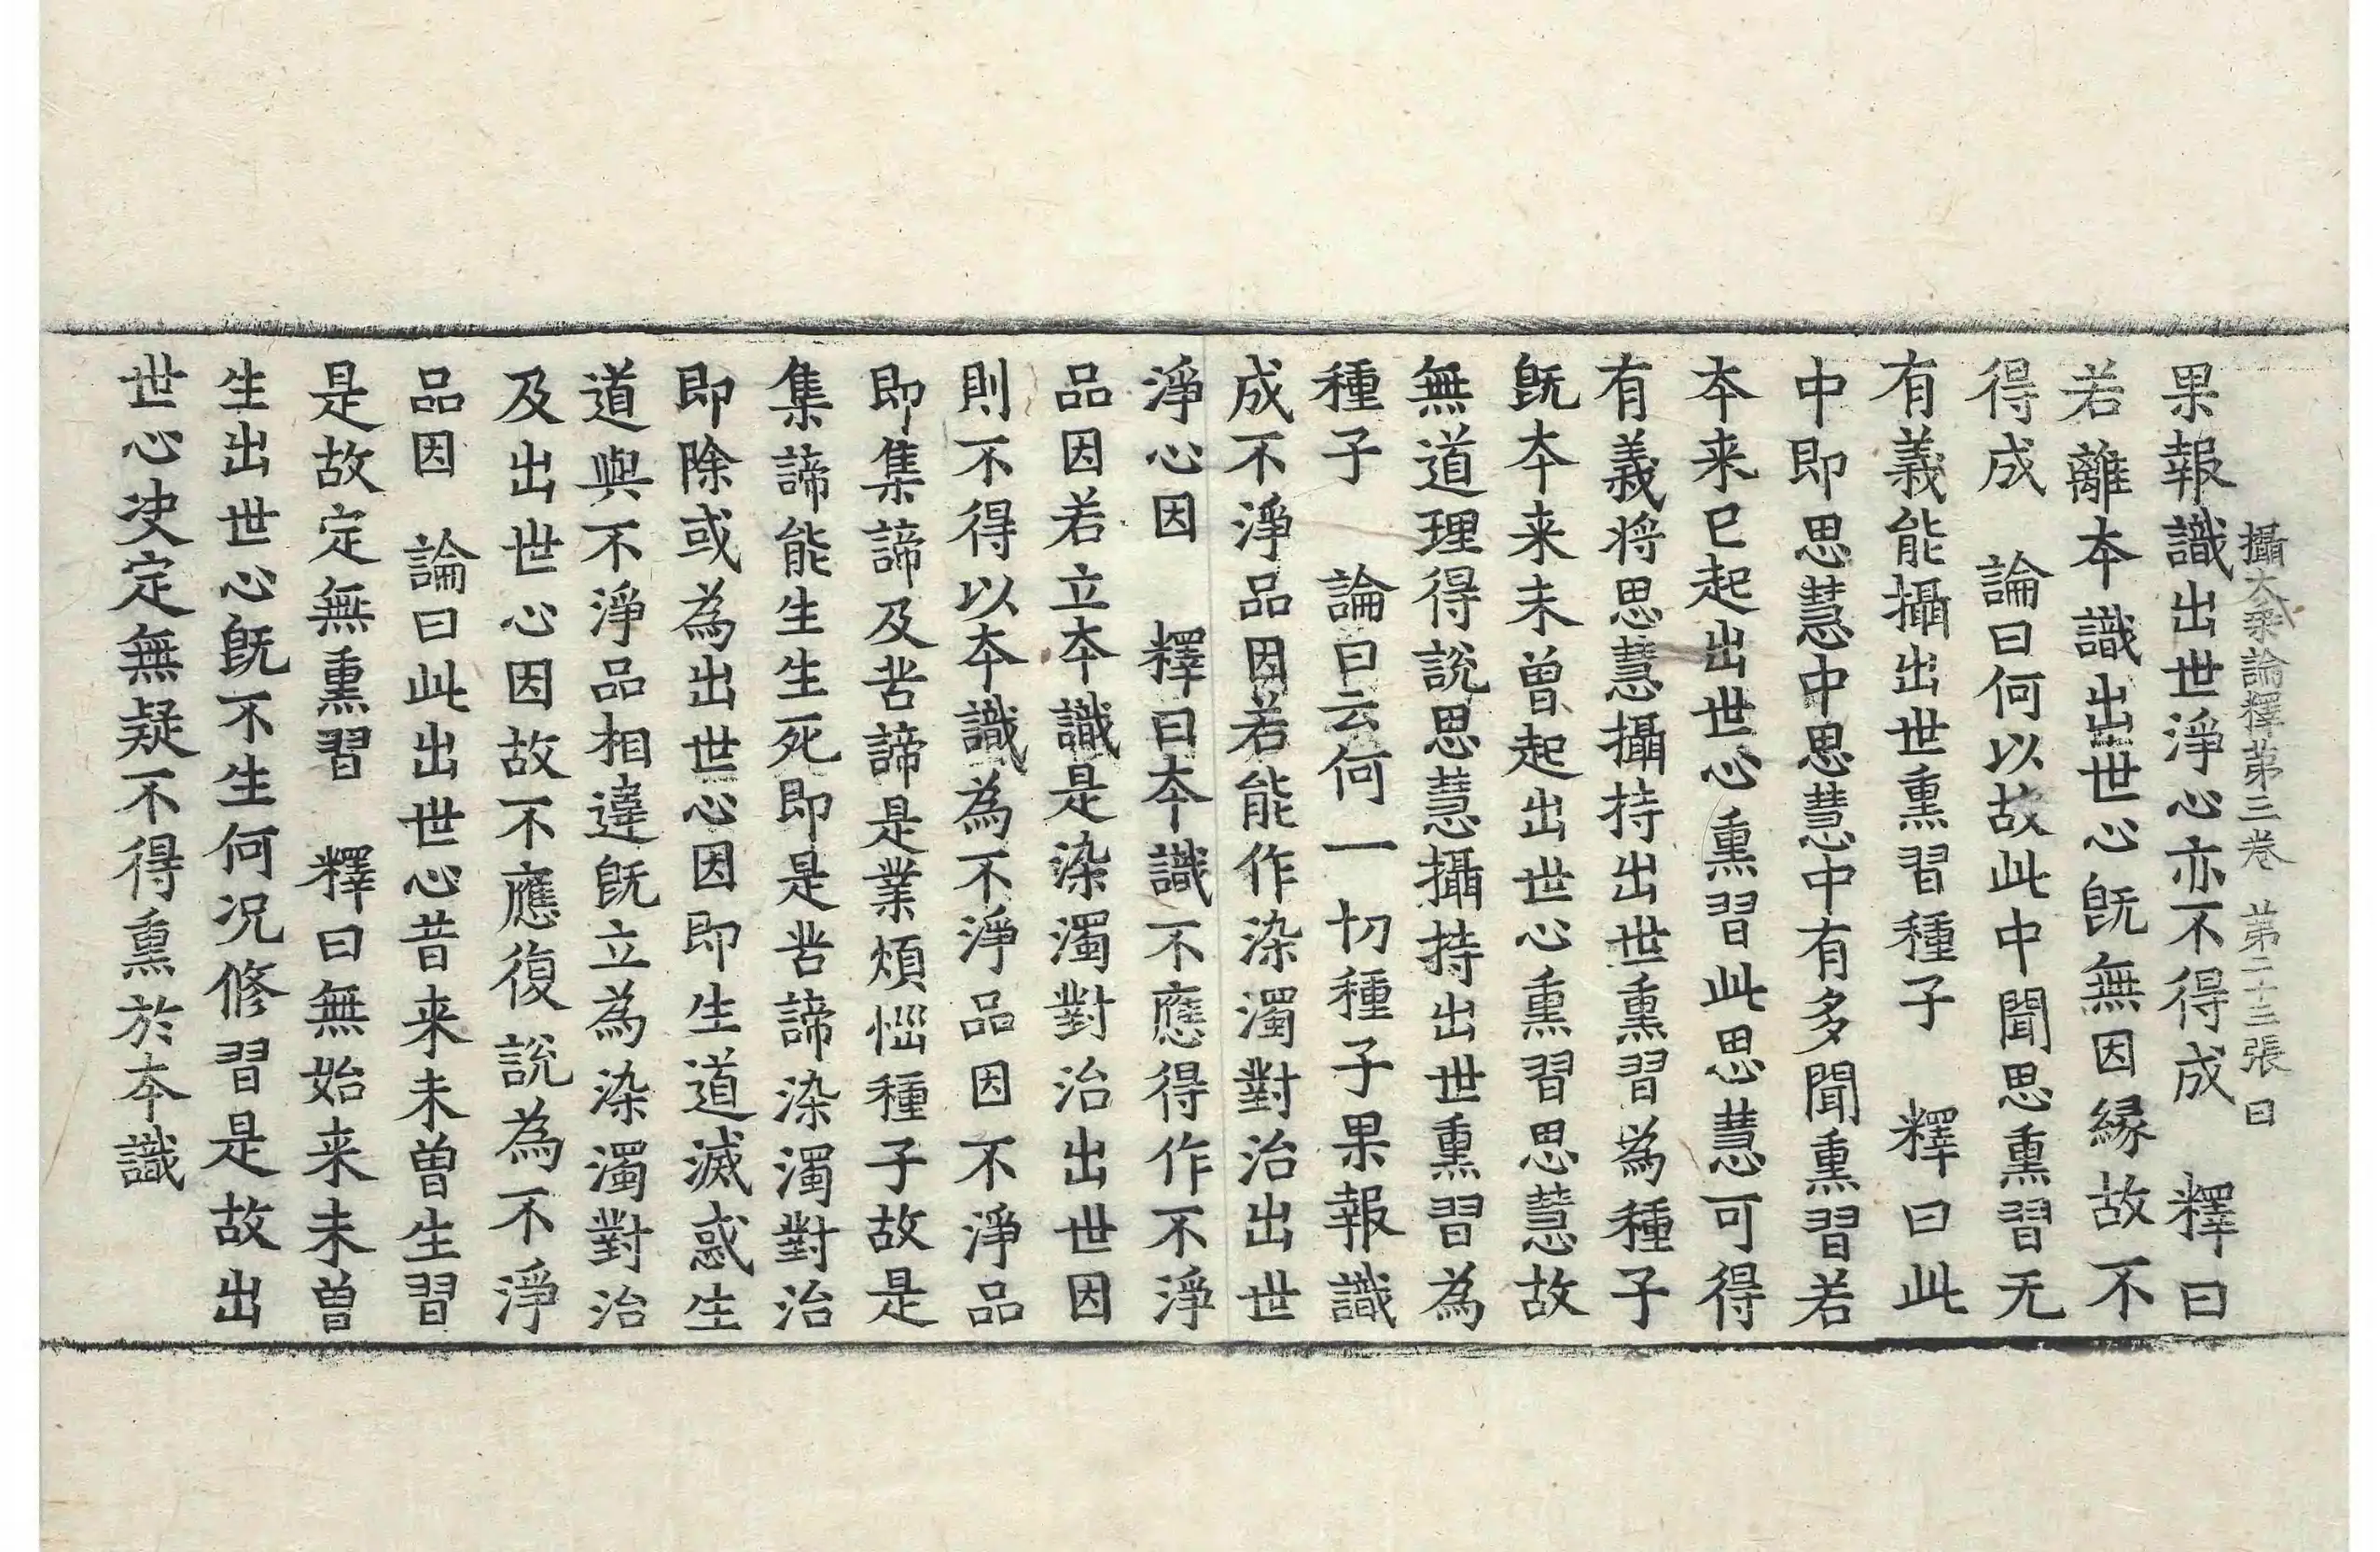 攝大乗論釋第三卷　第二十三張　曰
果報識出世淨心亦不得成　釋曰
若離本識出世心旣無因緣故不
得成　論曰何以故此中聞思熏習无
有義能攝出世熏習種子　釋曰此
中即思慧中思慧中有多聞熏習若
本来已起出世心熏習此思慧可得
有義将思慧攝持出世熏習為種子
旣本来未曾起出世心熏習思慧故
無道理得說思慧攝持出世熏習為
種子　論曰云何一切種子果報識
成不淨品因若能作染濁對治出世
淨心因　釋曰本識不應得作不淨
品因若立本識是染濁對治出世因
則不得以本識為不淨品因不淨品
即集諦及苦諦是業煩惱種子故是
集諦能生生死即是苦諦染濁對治
即除或為出世心因即生道滅惑生
道與不淨品相違旣立為染濁對治
及出世心因故不應復說為不淨
品因　論曰此出世心昔来未曾生習
是故定無熏習　釋曰無始来未曾
生出世心旣不生何况修習是故出
世心决定無疑不得熏於本識